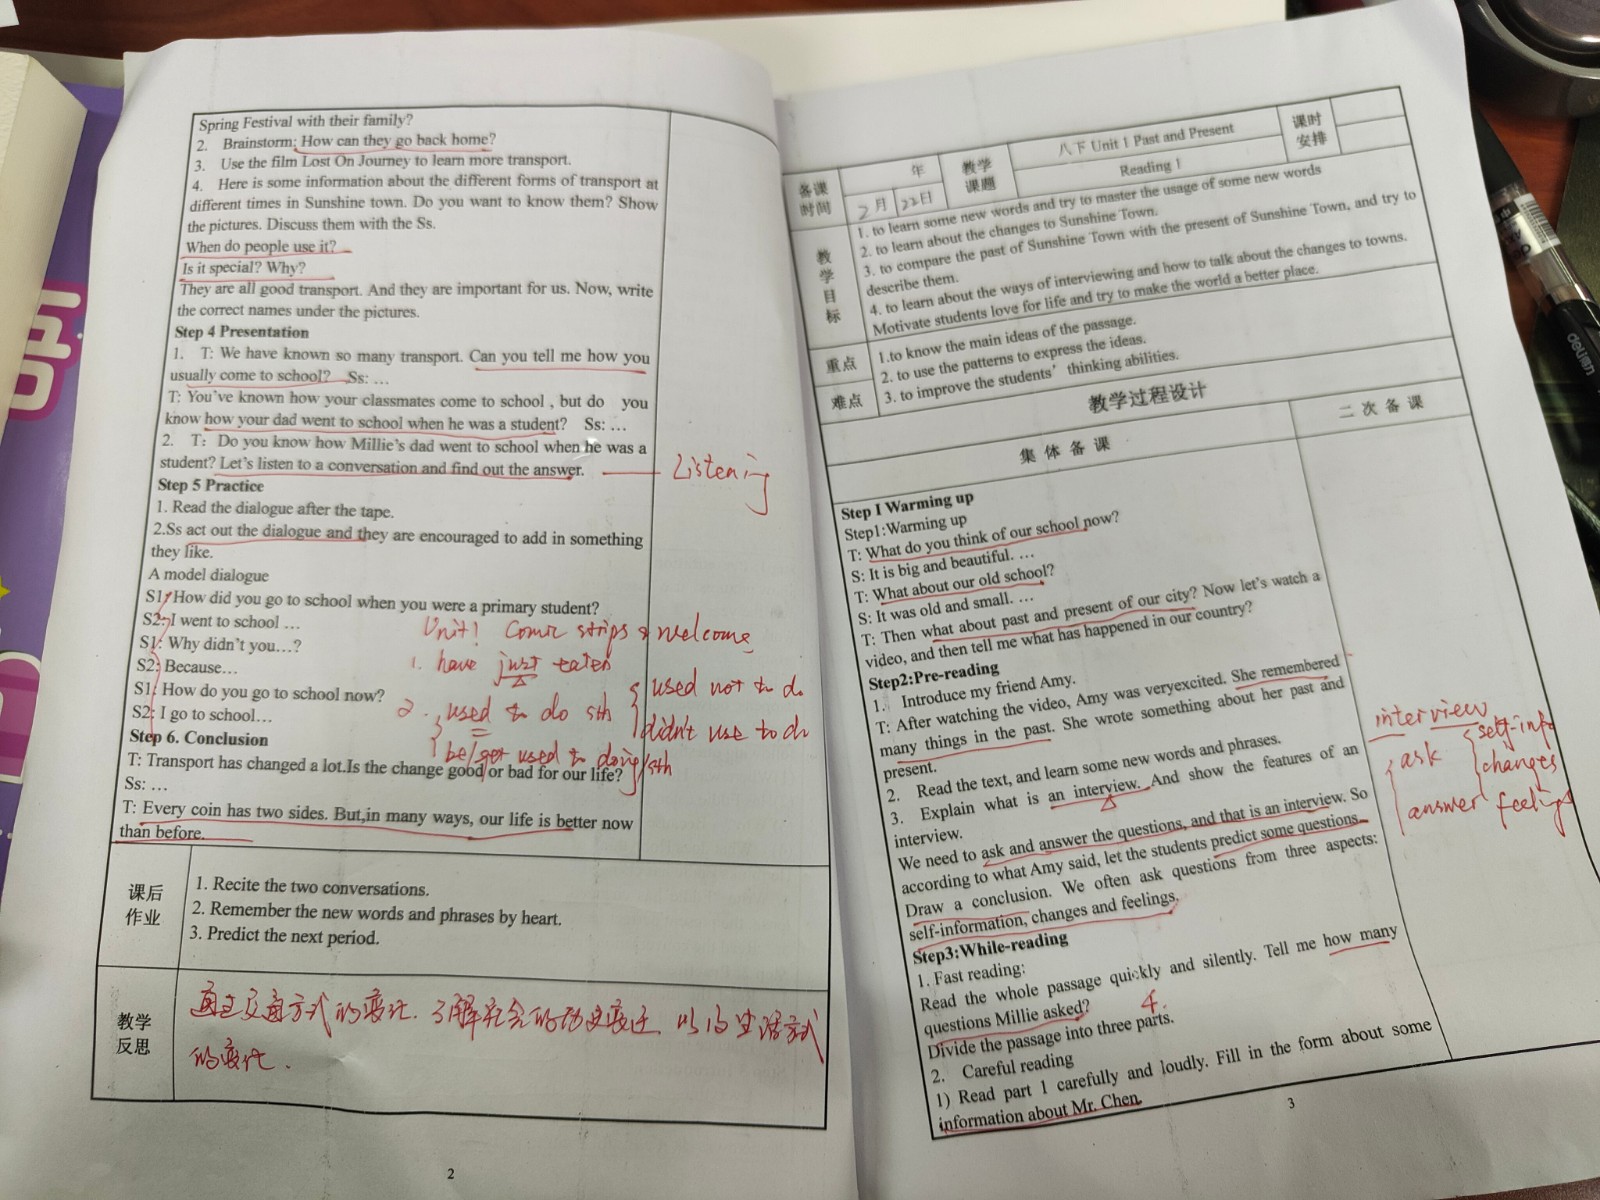 Spring Festival with their family?
2. Brainstorm: How can they go back home?
3. Use the film Lost On Journey to learn more transport.
4. Here is some information about the different forms of transport at
different times in Sunshine town. Do you want to know them? Show
the pictures. Discuss them with the Ss.
When do people use it?
Is it special? Why?
They are all good transport. And they are important for us. Now, write
the correct names under the pictures.
Step 4 Presentation
1. T: We have known so many transport. Can you tell me how you
usually come to school? Ss: …
T: You've known how your classmates come to school , but do you
know how your dad went to school when he was a student? Ss: …
2. T: Do you know how Millie's dad went to school when he was a
student? Let's listen to a conversation and find out the answer.
Listening
Step 5 Practice
1. Read the dialogue after the tape.
2.Ss act out the dialogue and they are encouraged to add in something
they like.
A model dialogue
S1: How did you go to school when you were a primary student?
S2: I went to school …
S1: Why didn't you…?
S2: Because…
S1: How do you go to school now?
S2: I go to school…
Unit1 Comic strips & welcome
1. have just eaten
2. used to do sth
used not to do
didn't use to do
be/get used to doing/sth
Step 6. Conclusion
T: Transport has changed a lot.Is the change good or bad for our life?
Ss: …
T: Every coin has two sides. But,in many ways, our life is better now
than before.
课后
作业
1. Recite the two conversations.
2. Remember the new words and phrases by heart.
3. Predict the next period.
教学
反思
通过交通方式的变化.了解社会的历史变迁 以及生活方式
的变化.
2
备课
时间
年
2月
22日
教学
课题
八下 Unit 1 Past and Present
Reading 1
课时
安排
教
学
目
标
1. to learn some new words and try to master the usage of some new words
2. to learn about the changes to Sunshine Town.
3. to compare the past of Sunshine Town with the present of Sunshine Town, and try to
describe them.
4. to learn about the ways of interviewing and how to talk about the changes to towns.
Motivate students love for life and try to make the world a better place.
重点
难点
1.to know the main ideas of the passage.
2. to use the patterns to express the ideas.
3. to improve the students' thinking abilities.
教学过程设计
集 体 备 课
二 次 备 课
Step I Warming up
Step1:Warming up
T: What do you think of our school now?
S: It is big and beautiful. …
T: What about our old school?
S: It was old and small. …
T: Then what about past and present of our city? Now let's watch a
video, and then tell me what has happened in our country?
Step2:Pre-reading
1. Introduce my friend Amy.
T: After watching the video, Amy was veryexcited. She remembered
many things in the past. She wrote something about her past and
present.
2. Read the text, and learn some new words and phrases.
3. Explain what is an interview. And show the features of an
interview.
We need to ask and answer the questions, and that is an interview. So
according to what Amy said, let the students predict some questions.
Draw a conclusion. We often ask questions from three aspects:
self-information, changes and feelings.
interview
ask
answer
self-info
changes
feelings
Step3:While-reading
1. Fast reading:
Read the whole passage quickly and silently. Tell me how many
questions Millie asked?
4.
Divide the passage into three parts.
2. Careful reading
1) Read part 1 carefully and loudly. Fill in the form about some
information about Mr. Chen.
3
deli